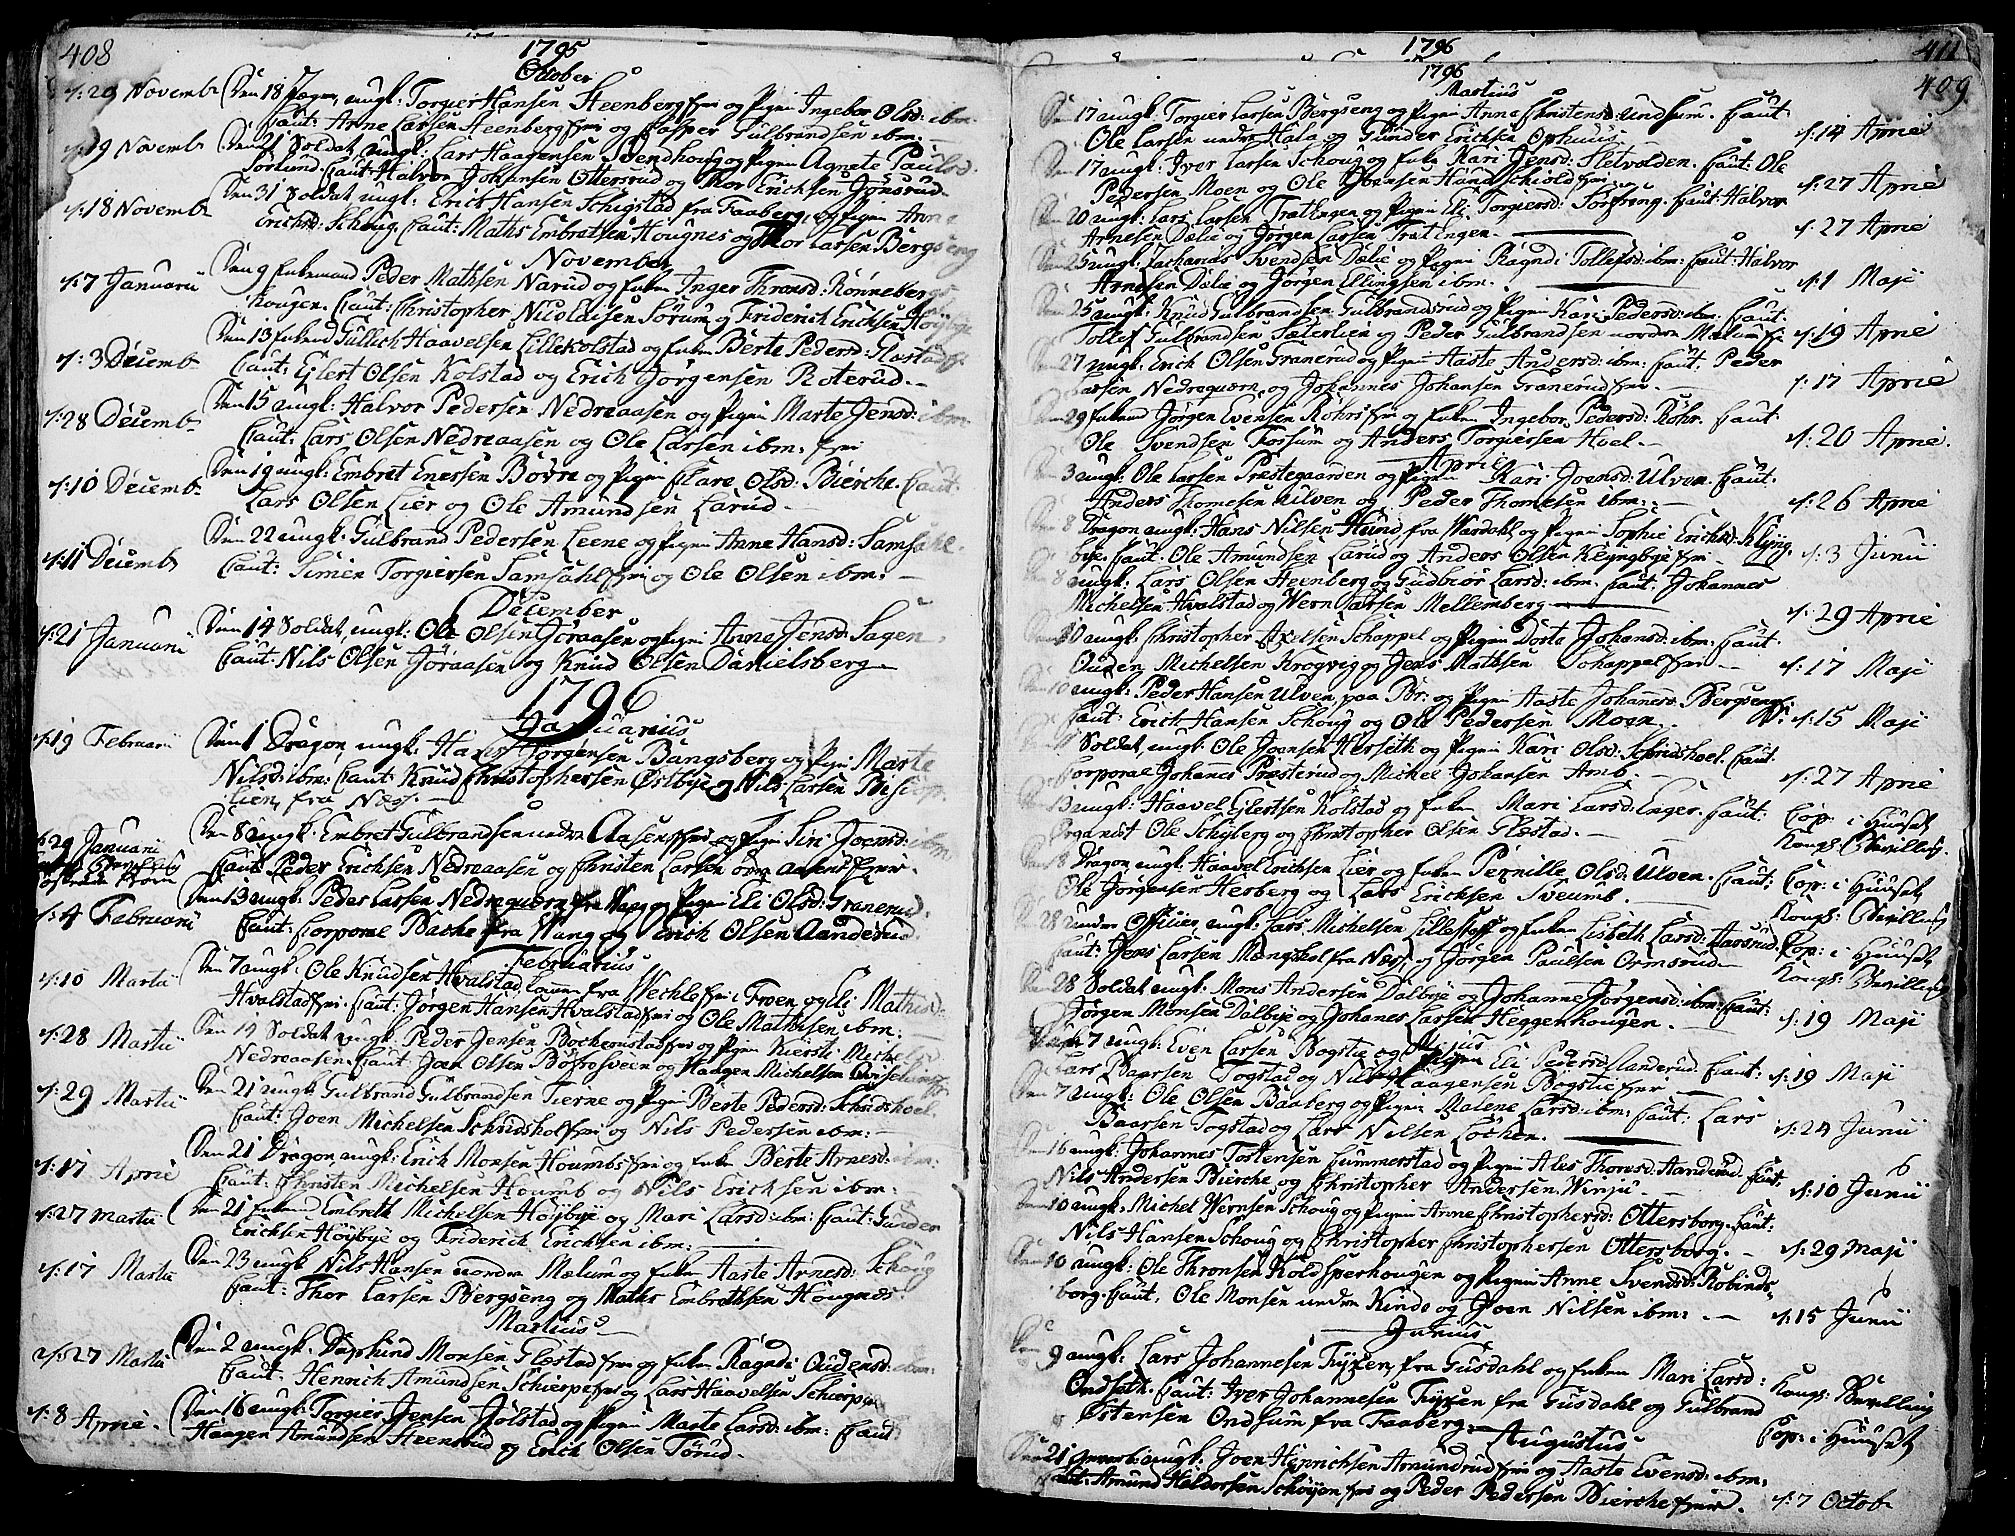 408
1795
October
d: 29 Novembr Den 18 ungk: Torgier Hansen Steenberg og Pigen Ingebor Olsd: ibm
Caut: Arne Larsen Steenberg og Casper Gulbrandsen ibm.
d: 19 Novembr Den 21 Soldat, ungk: Lars Haagensen Svendhoug og Pigen Agnete Paulsd.
Caut: Halvor Johansen Ottersrud og Thor Erichsen Jønsrud
d: 18 Novembr Den 31 Soldat ungk: Erich Hansen Schigstad fra Faaberg, og Pigen Anne
Erichsd: Schoug. Caut: Maths Embretsen Hougnes og Thor Larsen Bergseng
November
d: 7 Januarii Den 9 Enkemand Peder Mathsen Narud og Enken Inger Thronsd: Rønneberg
hougen. Caut: Christopher Nicolaisen Sørum og Friderich Erichsen Høybye
d: 3 Decembr Den 13 Gullich Haavelsen Lillekolstad og Enken Berte Pedersd: Glæstad
Caut: Eilert Olsen Kolstad og Erich Jørgensen Roterud.
d: 28 Decembr Den 15 ungk: Halvor Pedersen Nedreaasen og Pigen Marte Jensd: ibm
Caut: Lars Olsen Nedreaasen og Ole Larsen ibm:
d: 10 Decembr Den 19 ungk: Embret Enersen Børre og Pigen Clare Olsd: Bierche. Caut:
Lars Olsen Lier og Ole Amundsen Larud.
d: 11 Decembr Den 22 ungk: Gulbrand Pedersen Leene og Pigen Anne Hansd: Samsahl.
Caut: Simen Torgiersen Samsahl og Ole Olsen ibm:
December
d: 21 Januarii Den 14 Soldat, ungk: Ole Olsen Gøraasen og Pigen Anne Jensd: Sagen.
Caut: Nils Olsen Gøraasen og Knud Olsen Danielsberg
1796
Januarius
d: 19 Februarii Den 1 Dragon, ungk: Jørgensen Bangsberg og Pigen Marte
Nilsd: ibm: Caut: Knud Christophersen Østbye og Nils Larsen Biscop
lien, fra Næss.
d: 29 Januarii Den 8 ungk: Embret Gulbrandsen nedre Aasen og Pigen Siri Joensd: ibm
Caut: Peder Erichsen Nedreaasen og Christen Larsen
d: 4 Februarii Den 13 ungk: Peder Larsen Nedrequern fra Vang og Pigen Eli Olsd: Granerud.
Caut: Corporal Bache fra Wang og Erich Olsen Aanderud
Februarius
d: 10 Martii Den 7 ungk: Ole Knudsen Hvalstad, fra Wechle i Froen, og Eli Mathisd:
Hvalstad. Caut: Jørgen Hansen Hvalstad og Ole Mathisen ibm:
d: 28 Martii Den 19 Soldat ungk: Peder Jensen Bøchernstad og Pigen Kiersti Michelsd
Nedreaasen. Caut: Joen Olsen Bøfrosveen og Haagen Michelsen
d: 29 Martii Den 21 ungk: Gulbrand Gulbrandsen Tierne og Pigen Berte Pedersd: Schridshoel.
Caut: Joen Michelsen Schridshol og Nils Pedersen ibm:
d: 17 April Den 21 Dragon, ungk: Erich Monsen Houmb og Enken Berte Arnesd:
Caut: Christen Michelsen Houmb og Nils Erichsen ibm:
d: 27 Martii Den 21 Enkemd Embreth Michelsen Høybye og Mari Larsd: ibm: Caut: Gunder
Erichsen Høybye og Friderich Erichsen ibm:
d: 17 Martii Den 23 ungk Nils Hansen nordre Mælum og Enken Aaste Arnesd: Schoug
Caut: Thor Larsen Bergseng og Maths Embrethsen Hougnes
Martius
d: 27 Martii Den 2 ungk: Dagfind Monsen Glæstad og Enken Ragndi Oudensd: ibm:
Caut: Henrich Amundsen Schierpe og Lars Haavelsen Schierpe
d: 8 April. Den 16 ungk: Torgier Jensen Jølstad og Pigen Marte Larsd: ibm: Caut
Haagen Amundsen Steensrud og Erich Olsen Tørud.
1796
411
1796
409
Martius
Den 17 ungk: Torgier Larsen Bergseng og Pigen Anne Christensd: undsum. Caut:
Ole Larsen nedre Hala og Gunder Erichsen Ophuus d: 14 April
Den 17 ungk: Iver Larsen Schoug og Enken Kari Jensd: Sletvolden. Caut: Ole
Pedersen Moen og Ole Evensen Hundschiold d: 27 April
Den 20 ungk: Lars Larsen Tratengen og Pigen Eli Torgiersd: Torfreng. Caut: Halvor
Arnesen Dælie og Jørgen Larsen Tratengen. d: 27 April
Den 25 ungk: Zacharias Svendsen Dælie og Pigen Ragndi Tollefsd: ibm: Caut: Halvor
Arnesen Dælie og Jørgen Ellingsen ibm. d: 1 Maji
Den 25 ungk: Knud Gulbrandsen Gulbrandsrud og Pigen Kari Pedersd: ibm: Caut:
Tollef Gulbrandsen Sæterlien og Peder Gulbrandsen nordre Mælum d: 19 April
Den 27 ungk: Erich Olsen Granerud og Pigen Aaste Andersd: ibm: Caut: Peder
Larsen Nedrequern, og Johannes Johansen Granerud. d: 17 April
Den 29 Enkemd Jørgen Evensen Røhr og Enken Ingebor Pedersd: Røhr. Caut:
Ole Svendsen Forsum og Anders Torgiersen Hoel. d: 20 April
April
Den 3 ungk: Ole Larsen Prestegaarden og Pigen Kari Joensd: Ulven. Caut:
Anders Thomesen Ulven og Peder Thomesen ibm: d: 26 April
Den 8 Dragon ungk: Hans Nilsen Hund fra Wardahl og Pigen Sophie Erichsd: Klyng
bye. Caut: Ole Amundsen Larud og Anders Olsen Klyngbye d: 3 Junii
Den 8 ungk: Lars Olsen Steenberg og Gudbiør Larsd: ibm. Caut: Johannes
Michelsen Hvalstad og Wern Larsen Mellemberg d: 29 April
Den 10 ungk: Christopher Axelsen Schappel og Pigen Dorte Johansd: ibm: Caut:
Ouden Michelsen Krogvig og Jens Mathsen Schappel d: 17 Maji
Den 10 ungk: Peder Hansen Ulven paa Br: og Pigen Aaste Johansd: Bergseng.
Caut: Erich Hansen Schoug og Ole Pedersen Moen. d: 15 Maji
Soldat, ungk: Ole Joensen Herseth og Pigen Kari Olsd: Schridshoel. Caut:
Corporal Johannes Præsterud og Michel Johansen Amb. d: 27 April
Den 13 ungk: Haavel Eilertsen Kolstad og Enken Mari Larsd: Enger. Caut:
Sergeandt Ole Schyberg og Christopher Olsen Glæstad. Cop: i Huuset, Kongl: Bevilling.
Den 18 Dragon ungk: Haavel Erichsen Lier og Enken Pernille Olsd: Ulven. Caut:
Ole Jørgensen Hersberg og Lars Erichsen Sveumb. Cop: i Huuset, Kongl: Bevilling
Den 28 under Officier, ungk: Lars Michelsen Lilleslaff og Enken Lisbeth Larsd: Aarsrud.
Caut: Jens Larsen Mængshol fra Næss og Jørgen Paulsen Ormsrud Cop: i Huuset, Kongl: Bevilling
Den 28 Soldat ungk: Mons Andersen Dalbye og Johanne Jørgensd: ibm: Caut:
Jørgen Monsen Dalbye og Johanes Larsen Heggenhougen. d: 19 Maji
Majus
Den 7 ungk: Even Larsen Bogstie og Pigen Eli Pedersd: Landerud. Caut:
Lars Baarsen Togstad og Nils Haagensen Bogstie d: 19 Maji
Den 7 ungk: Ole Olsen Baaberg og Pigen Malene Larsd: ibm: Caut: Lars
Baarsen Togstad og Lars Nilsen Løchen. d: 24 Junii
Den 16 ungk: Johannes Tostensen Lummerstad og Pigen Ales Thoresd: Aanderud. Caut
Nils Andersen Bierche og Christopher Andersen Winju. d: 10 Junii
Den 10 ungk: Michel Wernsen Schoug og Pigen Anne Christophersd: Ottersborg. Caut:
Nils Hansen Schoug og Christopher Christophersen Ottersberg. d: 29 Maji
Den 10 ungk: Ole Thronsen Koldsperhougen og Pigen Anne Svendsd: Robinds
borg. Caut, Ole Monsen nedre Kinde og Joen Nilsen ibm: d: 15 Junii
Junius
Den 9 ungk: Lars Johannesen Tryzen, fra Gusdahl og Enken Mari Larsd:
Ondseth. Caut: Iver Johannesen Tryzen fra Gusdahl og Gulbrand Kongl: Bevilling
Østensen Ondsum fra Faaberg. Cop: i Huuset,
Augustus
Den 21 ungk: Joen Henrichsen Amundrud og Aaste Evensd: ibm:
Caut: Amund Haldorsen Schøyen og Peder Pedersen Bierche. d: 7 Octob